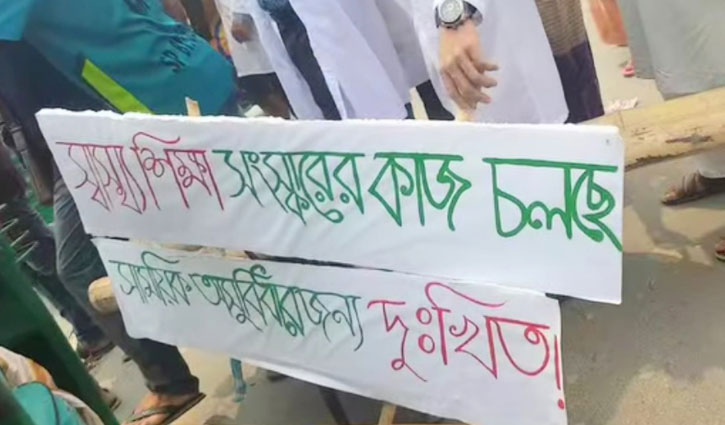 স্বাস্থ্য শিক্ষা সংস্কারের কাজ চলছে
সাময়িক অসুবিধার জন্য দুঃখিত!